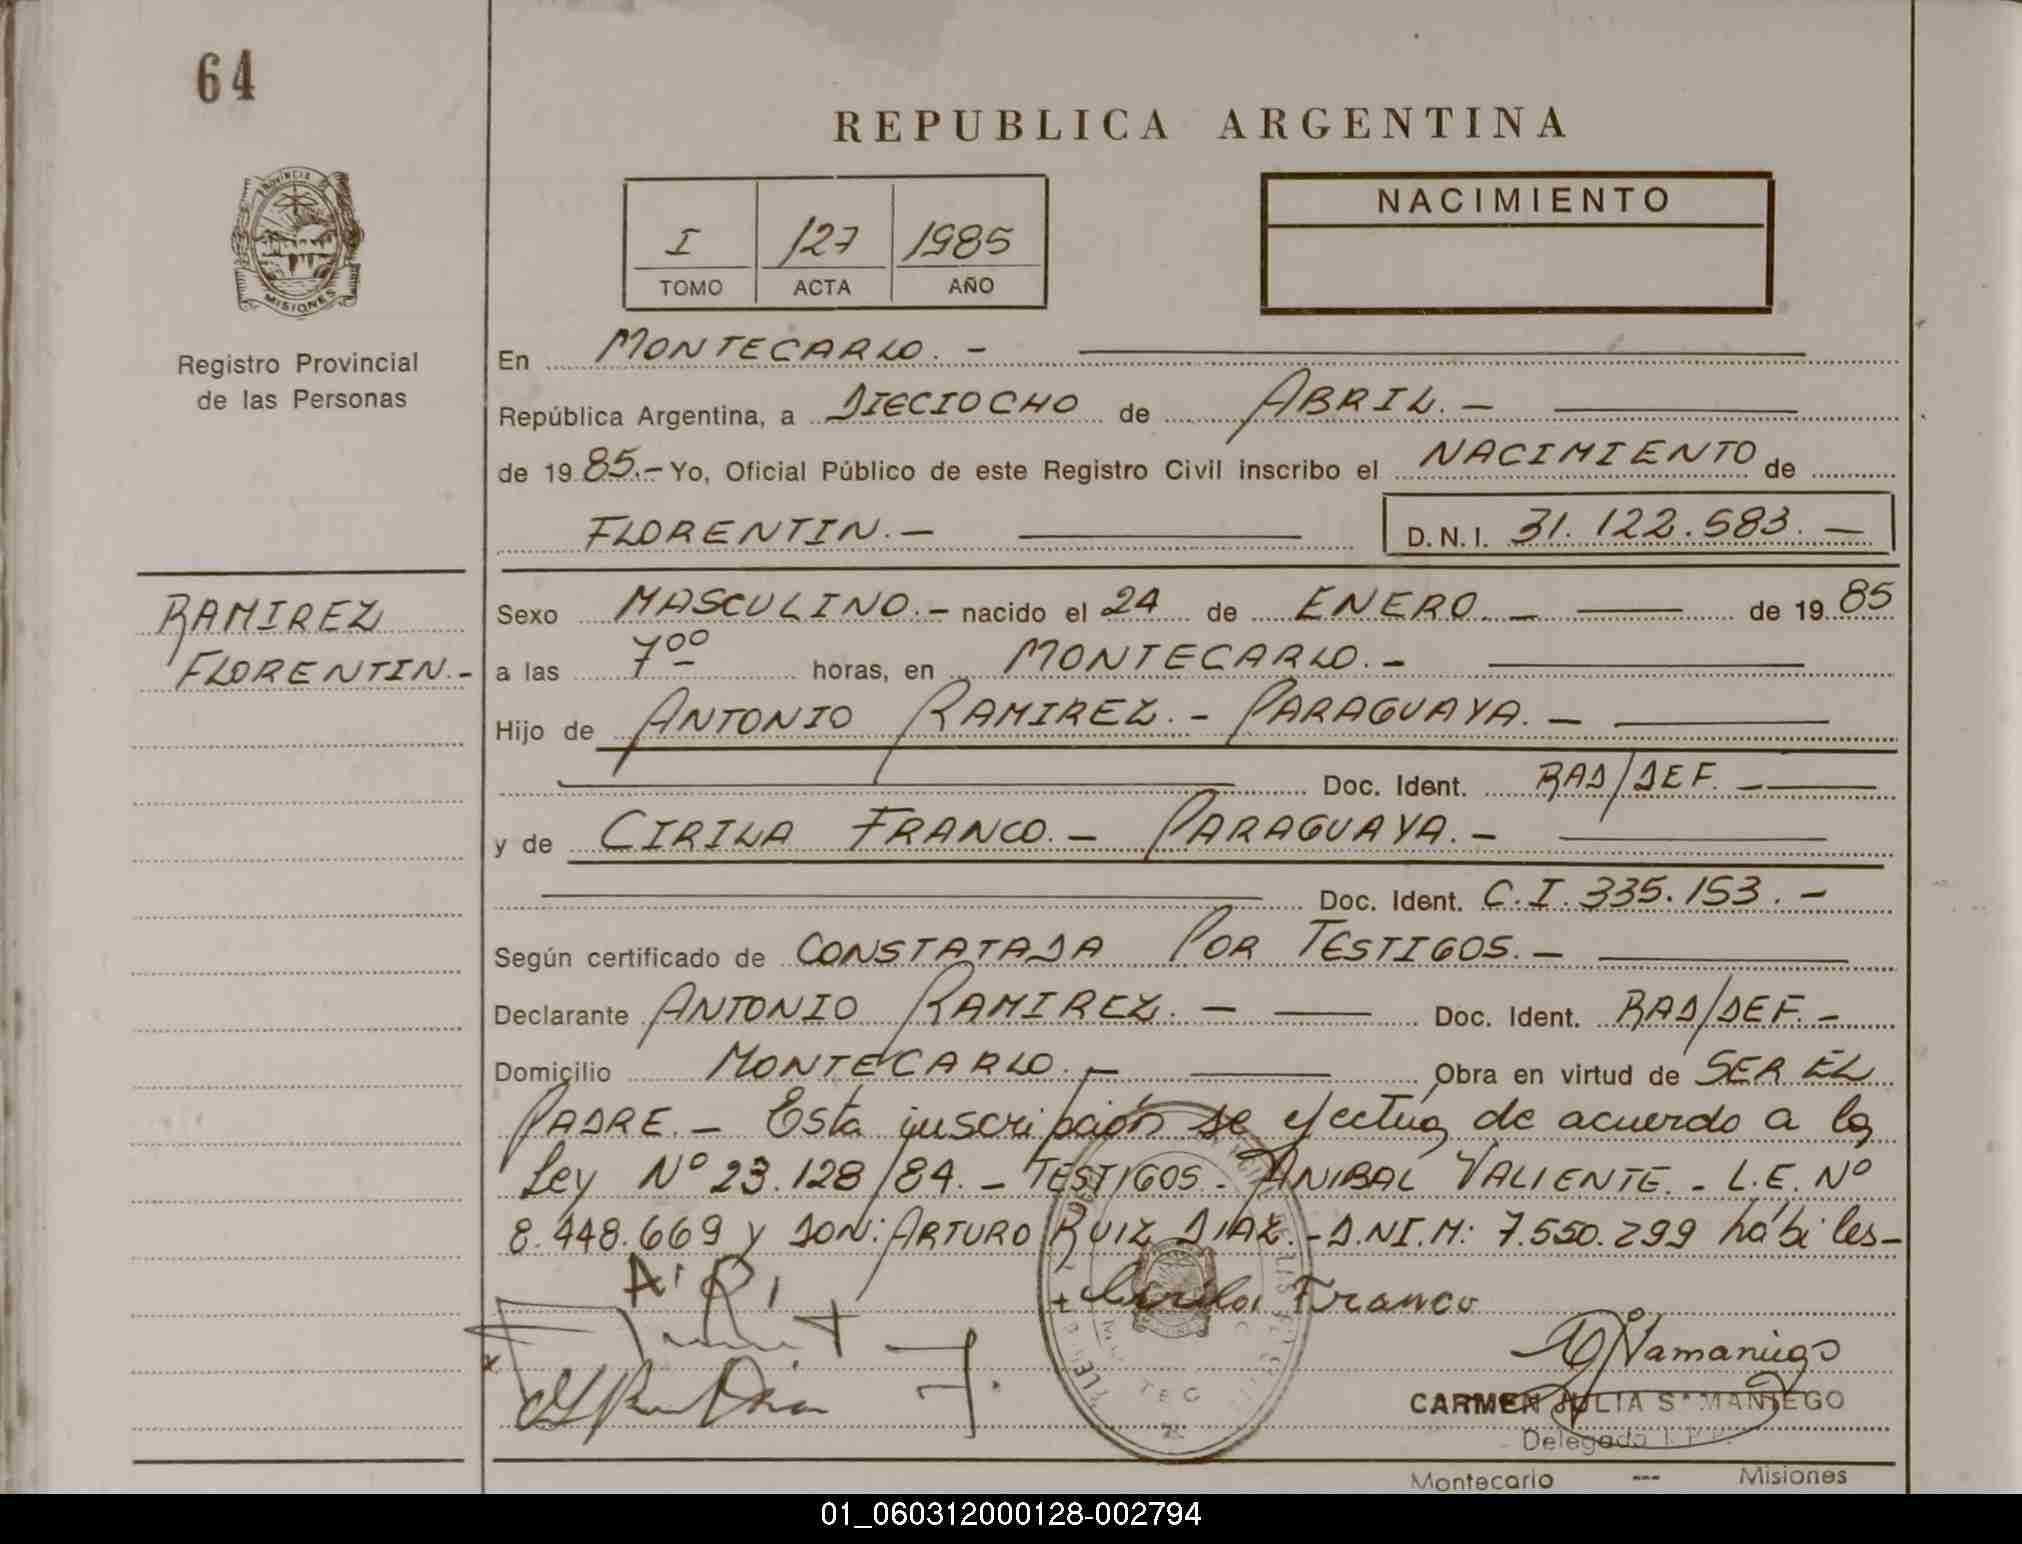 64
REPUBLICA ARGENTINA
PROVINCIA DE
MISIONES
Registro Provincial
de las Personas
I 127 1985
TOMO ACTA AÑO
NACIMIENTO
En MONTECARLO. -
República Argentina, a DIECIOCHO de ABRIL. -
de 1985.- Yo, Oficial Público de este Registro Civil inscribo el NACIMIENTO de
FLORENTIN. - D.N.I. 31.122.583. -
RAMIREZ
FLORENTIN. -
Sexo MASCULINO. - nacido el 24 de ENERO. - de 1985
a las 7ºº horas, en MONTECARLO. -
Hijo de ANTONIO RAMIREZ. - PARAGUAYA. -
Doc. Ident. RAD/DEF. -
y de CIRILA FRANCO. - PARAGUAYA. -
Doc. Ident. C.I. 335.153. -
Según certificado de CONSTATADA POR TESTIGOS. -
Declarante ANTONIO RAMIREZ. - Doc. Ident. RAD/DEF. -
Domicilio MONTECARLO. - Obra en virtud de SER EL
PADRE. - Esta inscripción se efectúa de acuerdo a la
Ley Nº 23.128/84. - TESTIGOS - ANIBAL VALIENTE. - L.E. Nº
8.448.669 y DON: ARTURO RUIZ DIAZ. - D.N.I.M: 7.550.299 hábiles-
A. R.
Cirila Franco
CARMEN JULIA SAMANIEGO
Delegada
Montecarlo --- Misiones
01_060312000128-002794